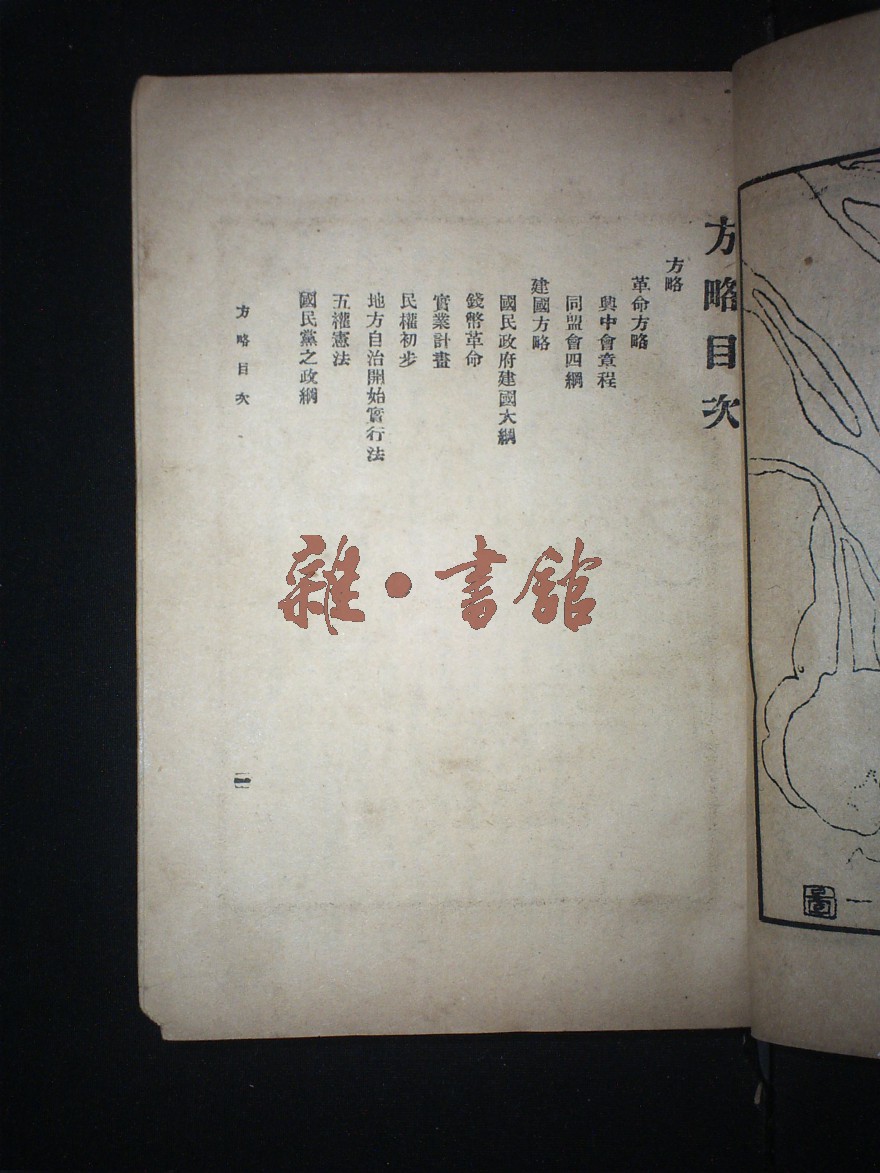 方略目次
方略
革命方略
興中會章程
同盟會四綱
建國方略
國民政府建國大綱
錢幣革命
實業計畫
民權初步
地方自治開始實行法
五權憲法
國民黨之政綱
方略目次
一
雜·書館
圖
一